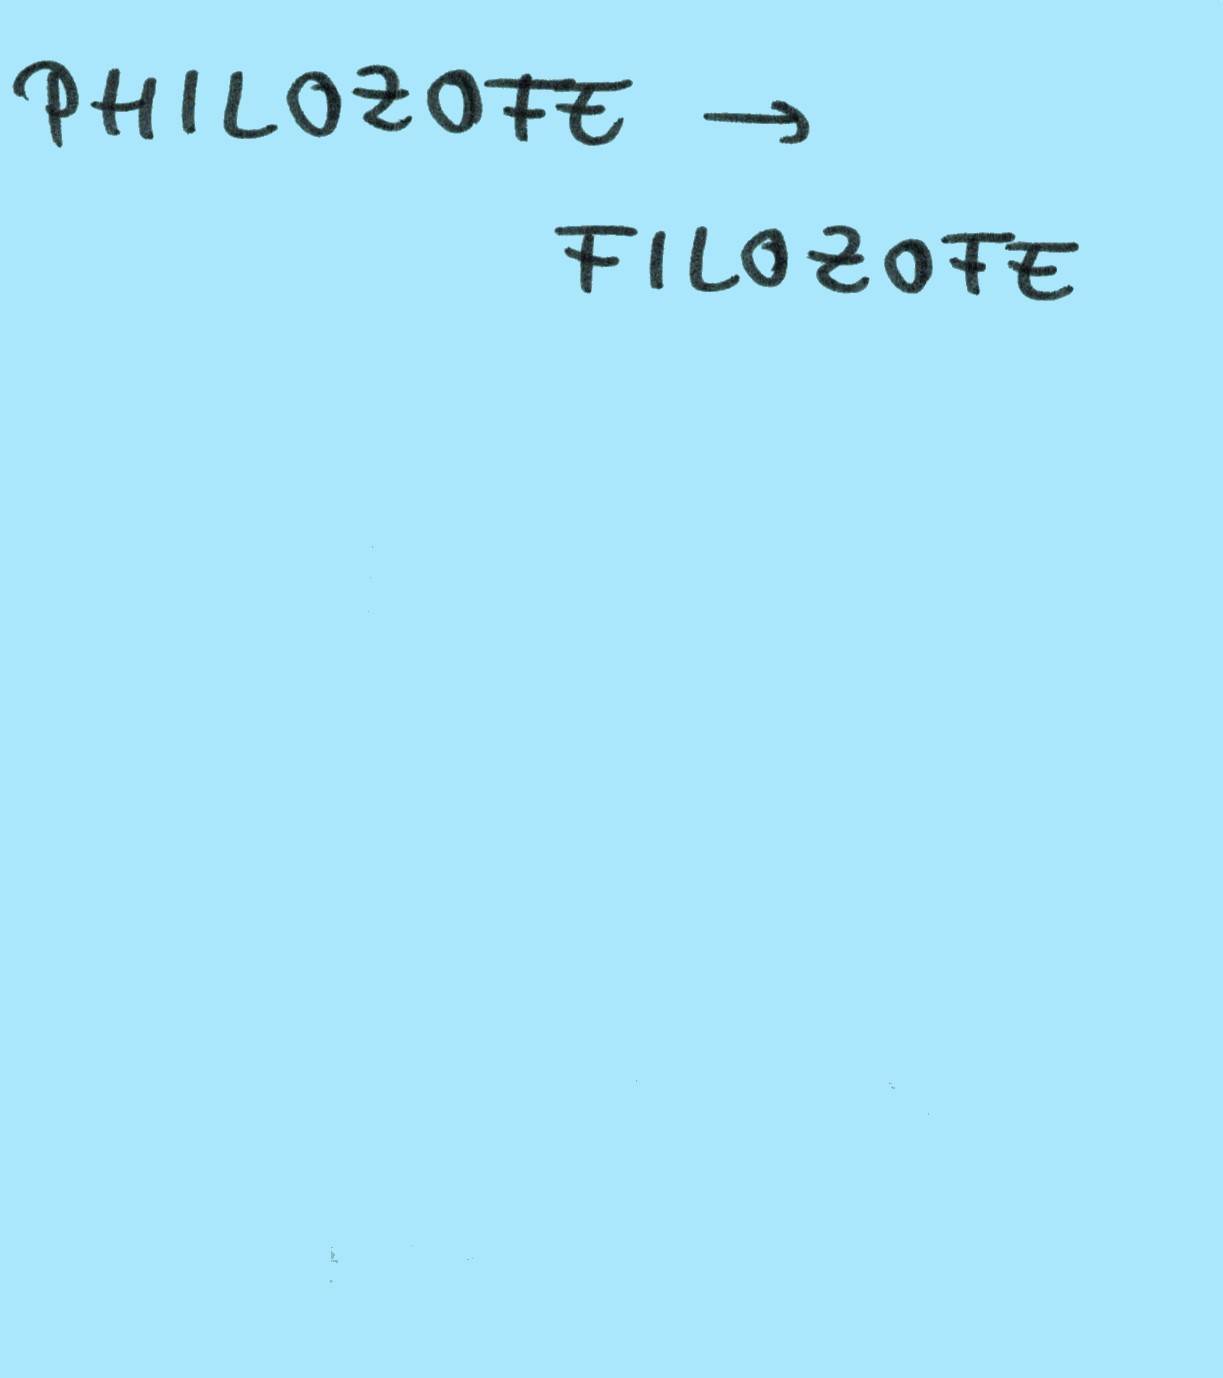 PHILOZOFE →
FILOZOFE